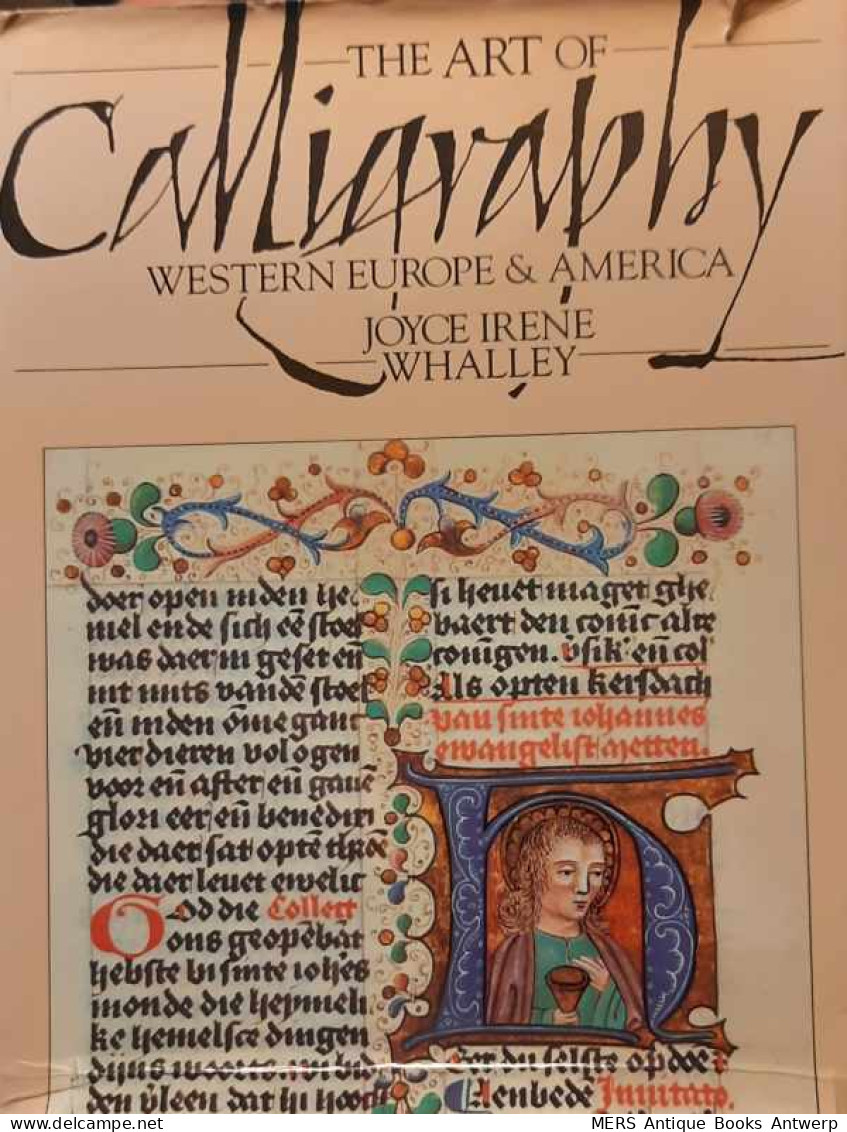 THE ART OF
Calligraphy
WESTERN EUROPE & AMERICA
JOYCE IRENE
WHALLEY
doer open in den he
mel ende sich eē stoel
was daer in geset eñ
uut vandē stoel
eñ in den ōme ganc
vier dieren vol ogen
voor eñ after eñ gauē
glori eer eñ benedixi
die daer sat optē thrōe
die daer leuet ewelic
God die Collect
ons geopēbāt
hebste bi sinte iohēs
monde die heymeli
ke hemelsce dingen
dijns woorts
den vleen dat hi hooch
si heuet maget ghe
baert den coninc alre
coningen. eñ col
Als opten kersdach
van sinte iohannes
ewangelist metten.
H
Eer du selste op doē
Uenbede Inuitato.
MERS Antique Books Antwerp